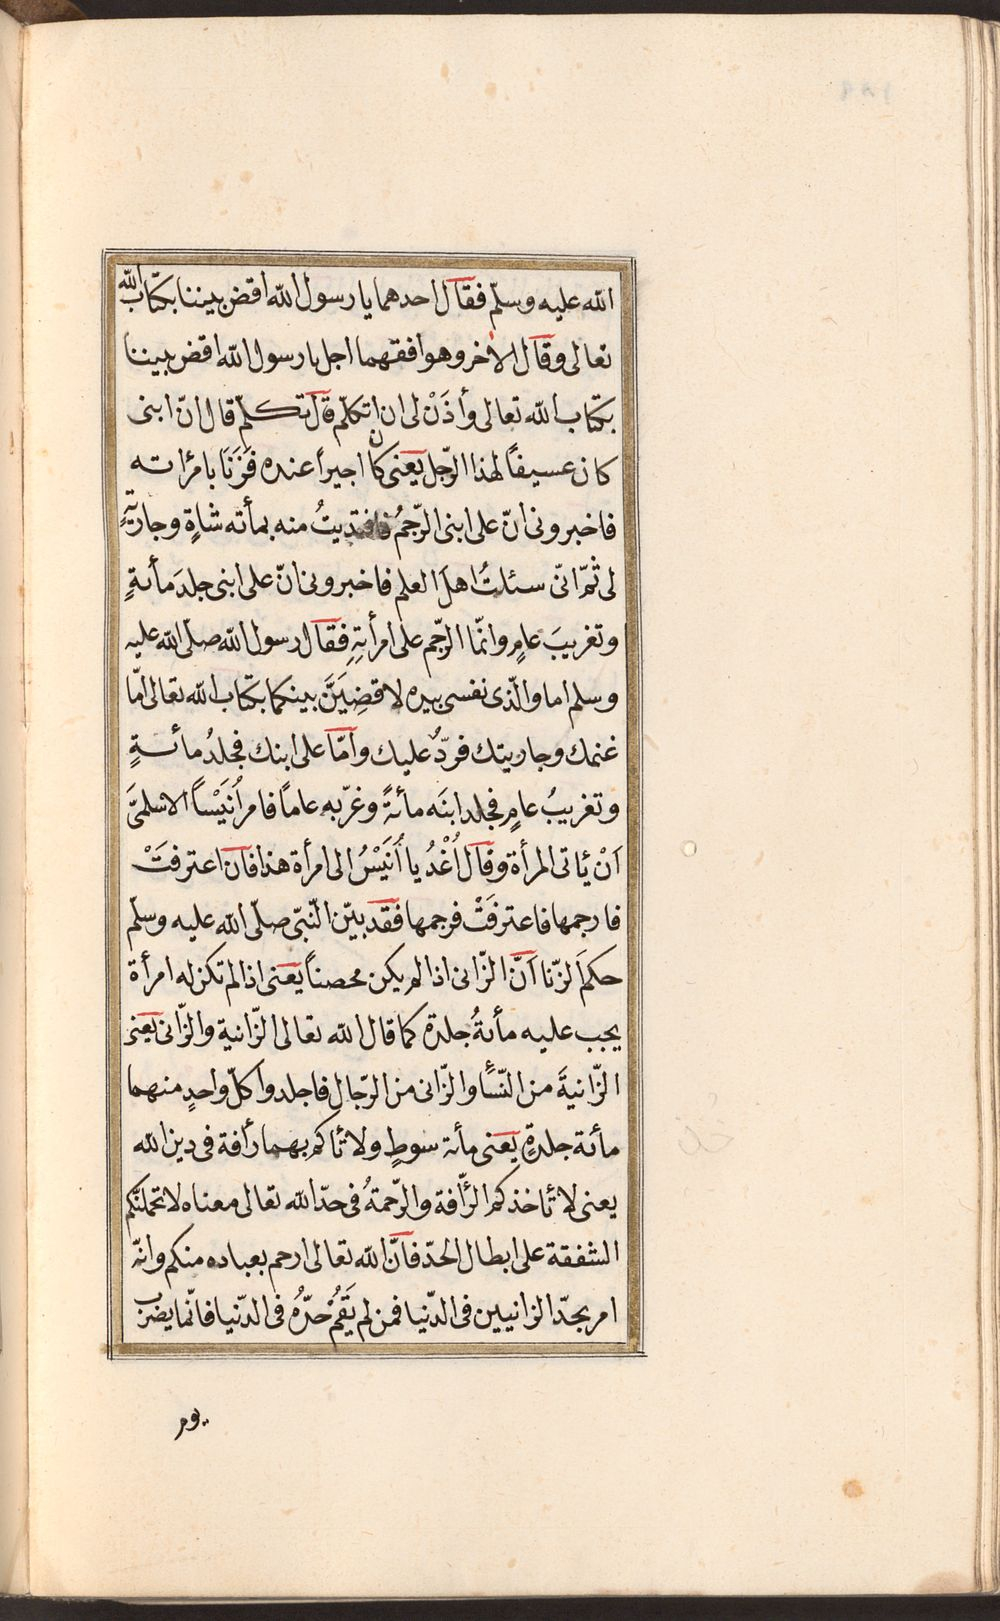 الله عليه وسلّم فقال احدهما يا رسول الله اقض بيننا بكتاب الله
تعالى وقال الاٰخر وهو افقههما اجل يا رسول الله اقض بيننا
بكتاب الله تعالى وأذَنْ لى ان اتكلّم قال تكلّم قال انّ ابنى
كان عسيفاً لهذا الرّجل يعنى كان اجيراً عنده فَزَنَا بامرٔاته
فاخبرونى انّ على ابنى الرّجمُ فافتديتُ منه بمأته شاةٍ وجاريَةٍ
لى ثمّ انّى سئلتُ اهلَ العلم فاخبرونى انّ على ابنى جلدَ مأئةٍ
وتغريبَ عامٍ وانّما الرّجم على امرأتِهِ فقال رسول الله صلّى الله عليه
وسلم اما والّذى نفسى بيده لاقضِيَنَّ بينكما بكتاب الله تعالى امّا
غنمك وجاريتك فردٌّ عليك وامّا على ابنك فجلدُ مائةٍ
وتغريبُ عامٍ فجلد ابنَه مأئةً وغرّبه عاماً فامر اُنَيْساً الاسلمىَّ
اَنْ ئاتى المرأة وقال اُغْدُ يا اُنَيْسُ الى امرأة هذا فان اعترفتْ
فارجمها فاعترفَتْ فرجمها فقد بيّن النّبىّ صلّى الله عليه وسلّم
حكمَ الزّنا اَنّ الزّانى اذا لم يكن محصناً يعنى اذا لم تكن له امرأة
يجب عليه مأئةُ جلدة كما قال الله تعالى الزّانية والزّانى يعنى
الزّانيةَ من النّسأ والزّانى من الرّجال فاجلدوا كلّ واحدٍ منهما
مأئة جلدةٍ يعنى مأئة سوطٍ ولا تٔاخذكم بهما رأفة فى دين الله
يعنى لا تٔاخذكم الرّأفة والرّحمةُ فى حدّ الله تعالى معناه لا تحملنّكم
الشفقة على ابطال الحدّ فانّ الله تعالى ارحم بعباده منكم وانّه
امر بحدّ الزانيين فى الدّنيا فمن لم يَقُمْ حدُّهُ فى الدّنيا فانّما يضرب
يوم